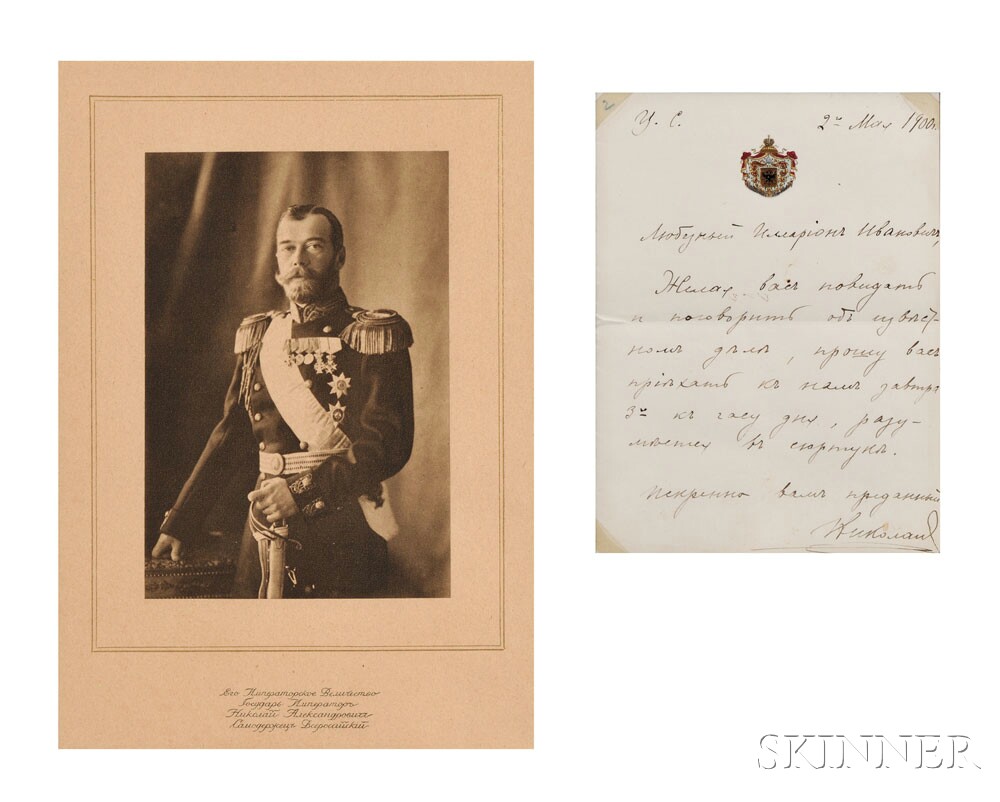 Его Императорское Величество
Государь Императоръ
Николай Александровичъ
Самодержецъ Всероссійскій
2
Ц. С.
2го Мая 1900 г.
Любезный Илларіонъ Ивановичъ,
Желая васъ повидать
и поговорить объ извѣст-
номъ дѣлѣ, прошу васъ
пріѣхать къ намъ завтра
3го къ часу дня, разу-
мѣется въ сюртукѣ.
Искренно вамъ преданный
Николай
SKINNER